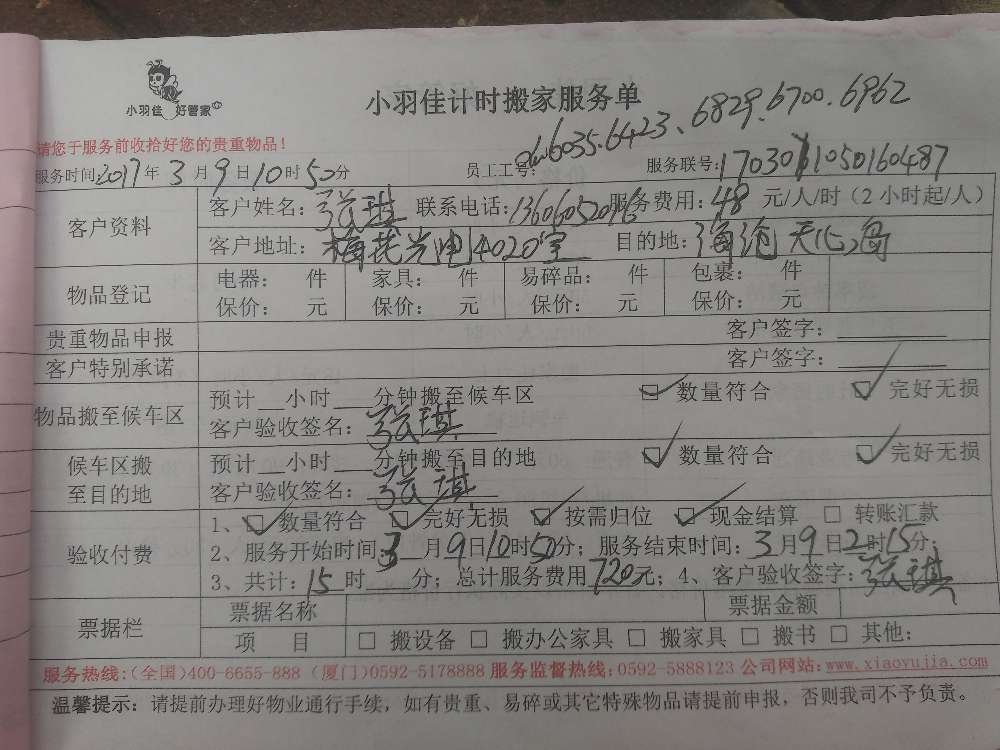 小羽佳 好管家
小羽佳计时搬家服务单
请您于服务前收拾好您的贵重物品!
服务时间:2017年3月9日10时50分 员工工号: 6035.6423、6829.6700.6962 服务联号:
客户资料 客户姓名:张琪 联系电话: 服务费用:48元/人/时(2小时起/人)
客户地址:梅花光电4020室 目的地:海沧天心岛
物品登记 电器: 件 家具: 件 易碎品: 件 包裹: 件
保价: 元 保价: 元 保价: 元 保价: 元
贵重物品申报 客户签字:
客户特别承诺 客户签字:
物品搬至候车区 预计__小时___分钟搬至候车区 数量符合 完好无损
客户验收签名:张琪
候车区搬至目的地 预计__小时___分钟搬至目的地 数量符合 完好无损
客户验收签名:张琪
验收付费 1、数量符合 完好无损 按需归位 现金结算 转账汇款
2、服务开始时间:3月9日10时50分;服务结束时间:3月9日2时15分;
3、共计:15时___分;总计服务费用720元;4、客户验收签字:张琪
票据栏 票据名称 票据金额
项 目 搬设备 搬办公家具 搬家具 搬书 其他:
服务热线:(全国)400-6655-888 (厦门)0592-5178888 服务监督热线:0592-5888123 公司网站:www.xiaoyujia.com
温馨提示:请提前办理好物业通行手续,如有贵重、易碎或其它特殊物品请提前申报,否则我司不予负责。